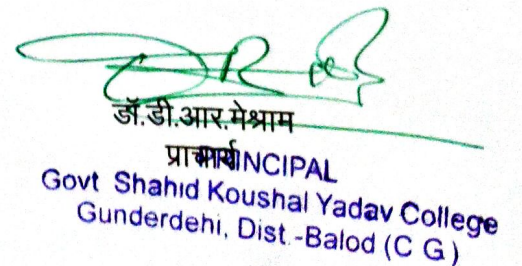 डॉ.डी.आर.मेश्राम
प्राचार्य PRINCIPAL
Govt Shahid Koushal Yadav College
Gunderdehi, Dist.-Balod (C G)